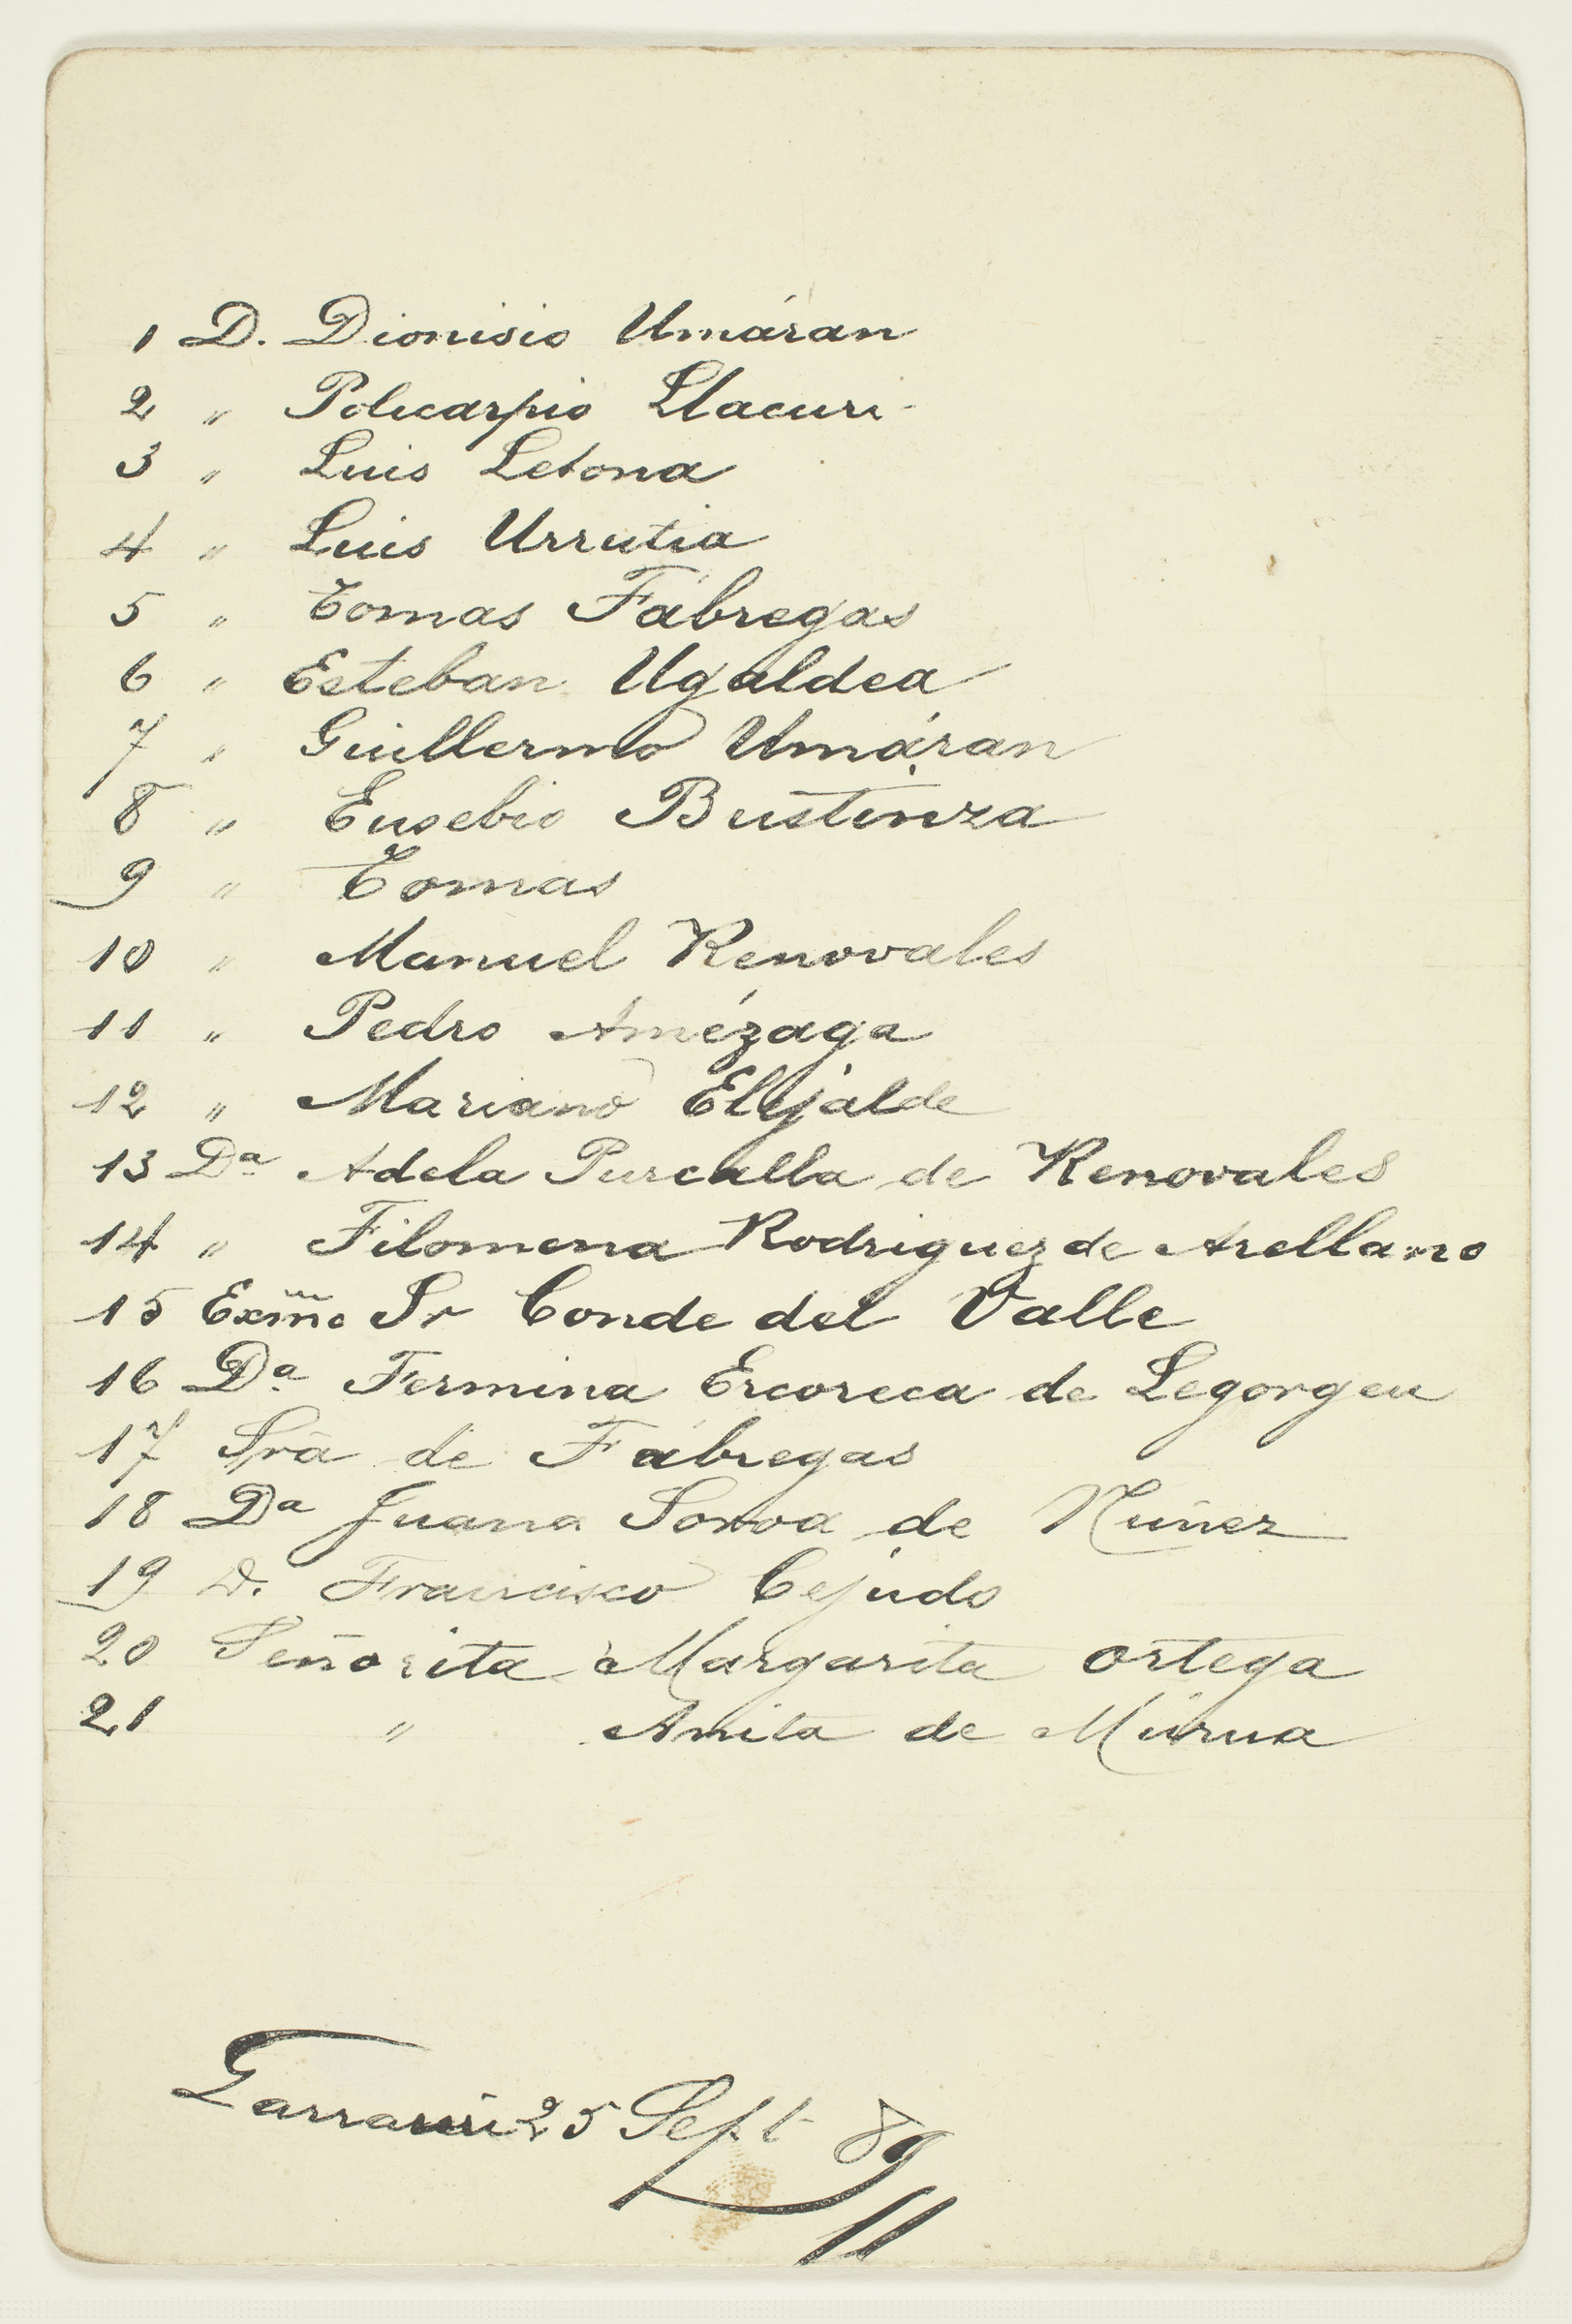 1 D. Dionisio Umáran
2 " Policarpio Llacuri
3 " Luis Letona
4 " Luis Urrutia
5 " Tomas Fábregas
6 " Esteban Ugaldea
7 " Guillermo Umáran
8 " Eusebio Bustinza
9 " Tomas
10 " Manuel Renovales
11 " Pedro Amézaga
12 " Mariano Elejalde
13 Dª Adela Purcalla de Renovales
14 " Filomena Rodriguez de Arellano
15 Exmo Sr Conde del Valle
16 Dª Fermina Ercoreca de Legorgeu
17 Sra de Fábregas
18 Dª Juana de Núñez
19 D. Francisco Cejudo
20 Señorita Margarita Ortega
21 " Anita de Múrua
25 Sept 89